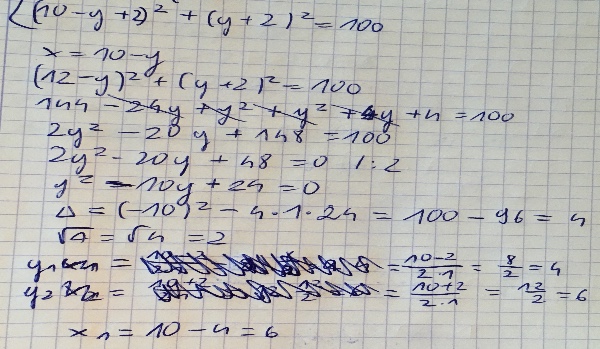 (10-y+2)² + (y+2)² = 100
x = 10-y
(12-y)² + (y+2)² = 100
144 - 24y + y² + y² + 4y + 4 = 100
2y² - 20y + 148 = 100
2y² - 20y + 48 = 0 /:2
y² - 10y + 24 = 0
Δ = (-10)² - 4·1·24 = 100 - 96 = 4
√Δ = √4 = 2
y₁ = = (10-2)/(2·1) = 8/2 = 4
y₂ = = (10+2)/(2·1) = 12/2 = 6
x₁ = 10 - 4 = 6